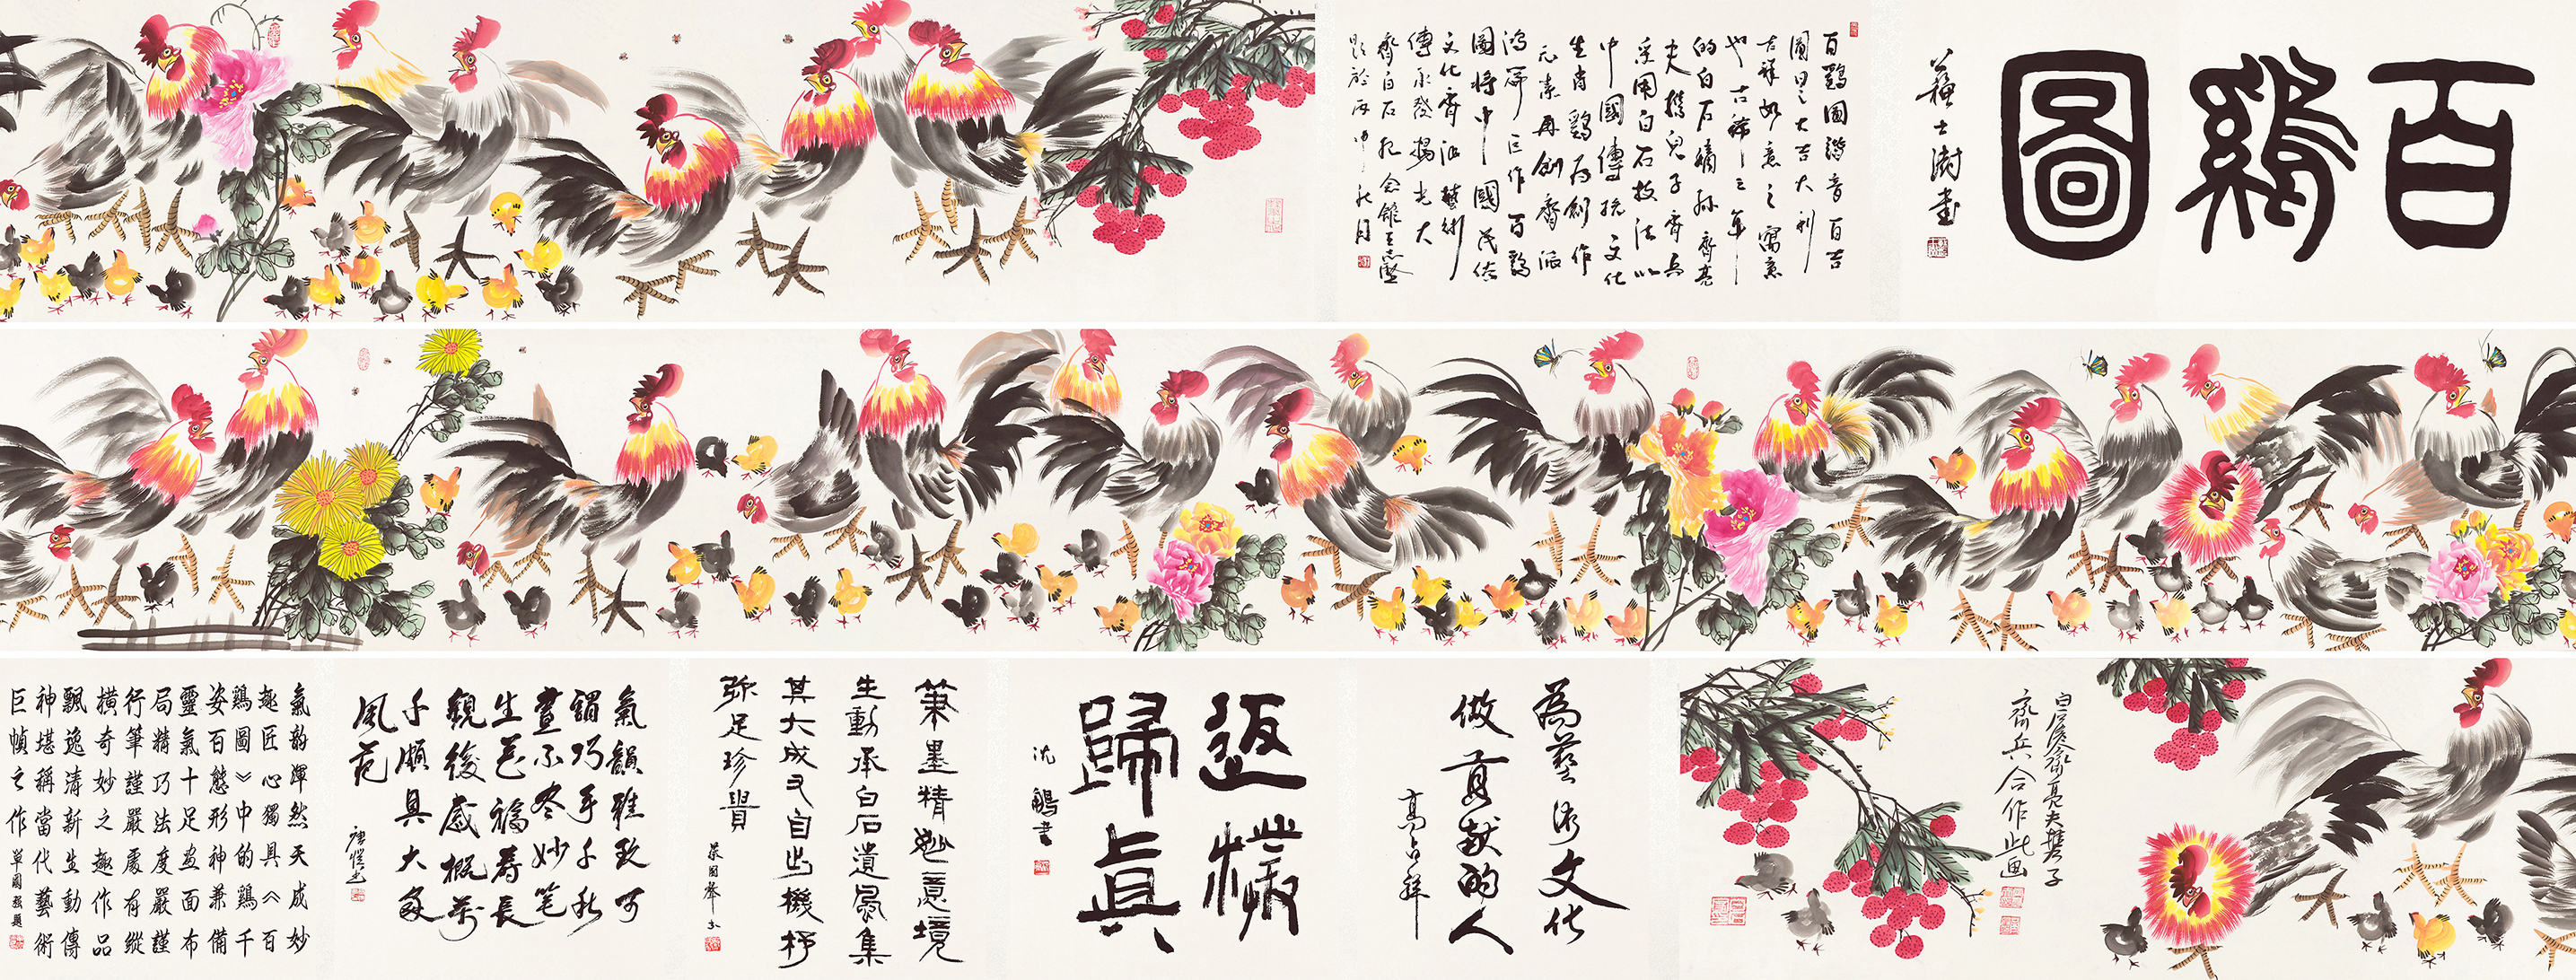 百鷄圖
蘇士澍書
百鷄圖諧音百吉
大吉大利
吉祥如意之寓意
也古稀之年
的白石嫡孫齊亮
夫携兒子齊兵
采用白石技法以
中國傳統文化
生肖鷄為創作
元素再創齊派
鴻篇巨作百鷄
圖將中國民俗
文化齊派藝術
傳承發揚光大
齊白石紀念館
題於丙申秋月
齊亮夫携子
齊兵合作此画
為藝術文化
做貢獻的人
高占祥
返樸
歸真
沈鵬書
筆墨精妙意境
生動承白石遺風集
其大成又自出機杼
弥足珍貴
氣韻雅致可
謂巧手千秋
畫不盡妙笔
生花福壽長
觀後感概萬
千頗具大家
風范
氣韵渾然天成妙
趣匠心獨具《百
鷄圖》中的鷄千
姿百態形神兼備
靈氣十足画面布
局精巧法度嚴謹
行筆謹嚴處有縱
橫奇妙之趣作品
飄逸清新生動傳
神堪稱當代藝術
巨幀之作
單國强題